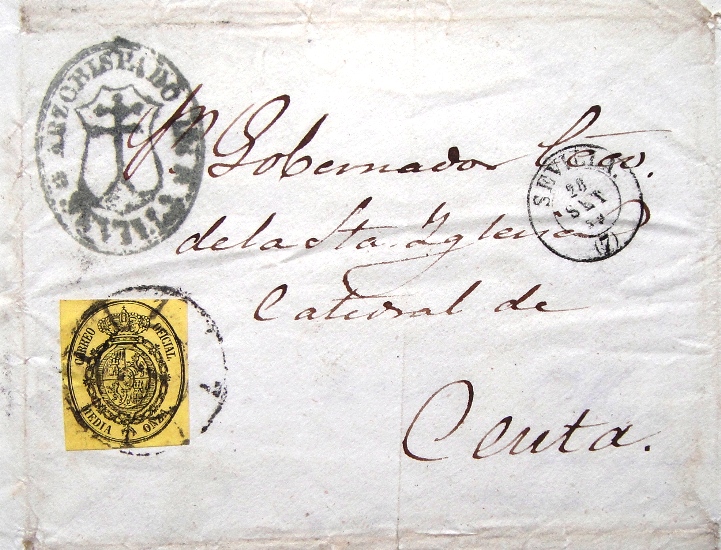 ARZOBISPADO DE SEVILLA
Sr. Gobernador Ecco.
de la Sta. Yglesia
Catedral de
Ceuta.
SEVILLA.
28
SET
(7)
CORREO OFICIAL
MEDIA ONZA